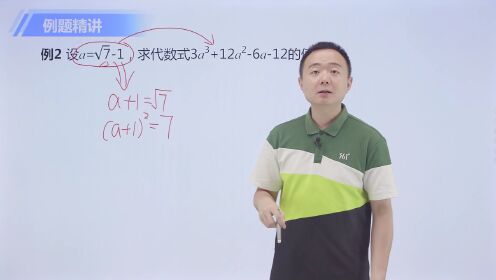 例题精讲
例2 设a=√7-1, 求代数式3a³+12a²-6a-12的
a+1=√7
(a+1)²=7